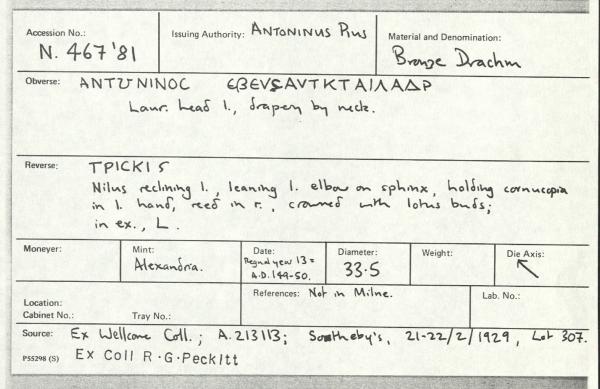 Accession No.: Issuing Authority: ANTONINUS PIUS Material and Denomination:
N. 467'81 Bronze Drachm
Obverse: ANTⲰNINOC ЄβEVSAVTKTAIΛAΔP
Laur. head l., drapery by neck.
Reverse: TPICKIS
Nilus reclining l., leaning l. elbow on sphinx, holding cornucopia
in l. hand, reed in r., crowned with lotus buds;
in ex., L .
Moneyer: Mint: Date: Diameter: Weight: Die Axis:
Alexandria. Regnal year 13 = A.D. 149-50. 33.5 ↖
Location: References: Not in Milne. Lab. No.:
Cabinet No.: Tray No.:
Source: Ex Wellcome Coll.; A.213113; Sotheby's, 21-22/2/1929, Lot 307.
P55298 (S) Ex Coll R.G.Peckitt